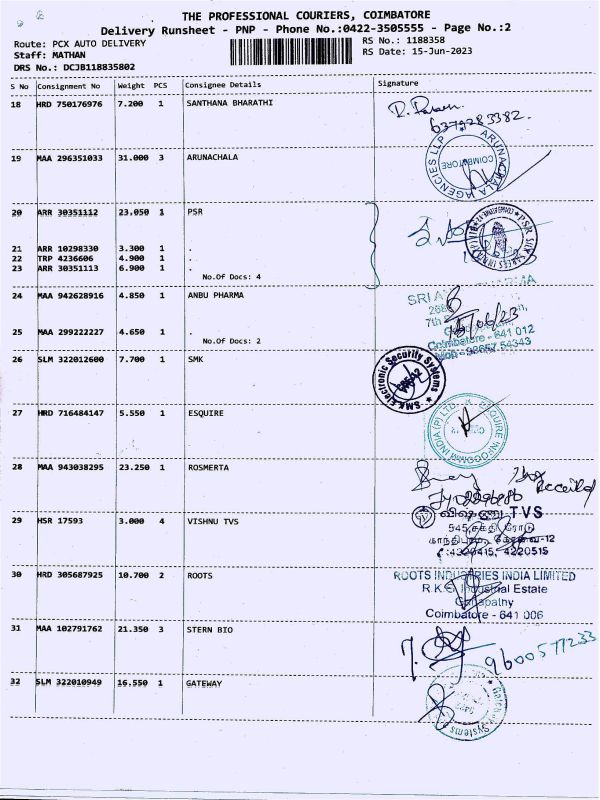 THE PROFESSIONAL COURIERS, COIMBATORE
Delivery Runsheet - PNP - Phone No.:0422-3505555 - Page No.:2
Route: PCX AUTO DELIVERY
RS No.: 1188358
Staff: MATHAN
RS Date: 15-Jun-2023
DRS No.: DCJB118835802
S No Consignment No Weight PCS Consignee Details Signature
18 HRD 750176976 7.200 1 SANTHANA BHARATHI
6379283382.
19 MAA 296351033 31.000 3 ARUNACHALA
ARUNACHALA AGENCIES LLP
COIMBATORE
20 ARR 30351112 23.050 1 PSR
21 ARR 10298330 3.300 1 .
22 TRP 4236606 4.900 1 .
23 ARR 30351113 6.900 1 .
No.Of Docs: 4
24 MAA 942628916 4.850 1 ANBU PHARMA
15/06/23
Coimbatore - 641 012
25 MAA 299222227 4.650 1 .
No.Of Docs: 2
26 SLM 322012600 7.700 1 SMK
SMK Electronic Security Systems
27 HRD 716484147 5.550 1 ESQUIRE
28 MAA 943038295 23.250 1 ROSMERTA
Received
29 HSR 17593 3.000 4 VISHNU TVS
விஷ்ணு TVS
545, சக்தி ரோடு
காந்திபுரம், கோவை-12
: 4220415, 4220515
30 HRD 305687925 10.700 2 ROOTS
ROOTS INDUSTRIES INDIA LIMITED
R.K.G. Industrial Estate
Ganapathy
Coimbatore - 641 006
31 MAA 102791762 21.350 3 STERN BIO
9600577233
32 SLM 322010949 16.550 1 GATEWAY